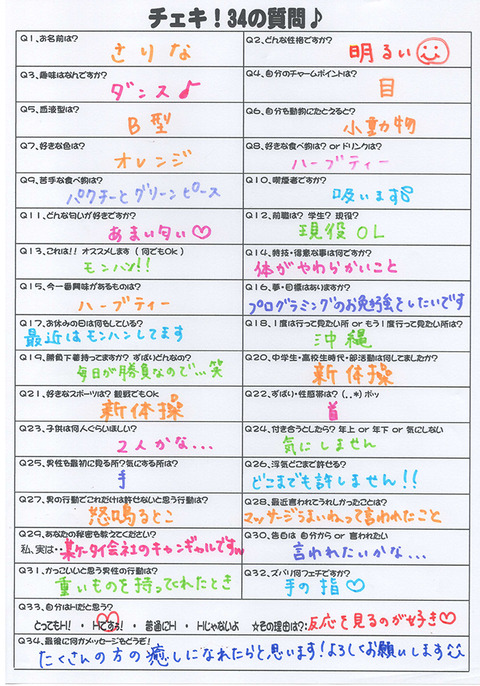 チェキ！34の質問♪
Q1、お名前は？
さりな
Q2、どんな性格ですか？
明るい
Q3、趣味はなんですか？
ダンス♪
Q4、自分のチャームポイントは？
目
Q5、血液型は？
B型
Q6、自分を動物にたとえると？
小動物
Q7、好きな色は？
オレンジ
Q8、好きな食べ物は？ or ドリンクは？
ハーブティー
Q9、苦手な食べ物は？
パクチーとグリーンピース
Q10、喫煙者ですか？
吸います
Q11、どんな匂いが好きですか？
あまい匂い♡
Q12、前職は？ 学生？ 現役？
現役OL
Q13、これは！！ オススメします（何でもOk）
モンハン!!
Q14、特技・得意な事は何ですか？
体がやわらかいこと
Q15、今一番興味があるものは？
ハーブティー
Q16、夢・目標はありますか？
プログラミングのお勉強をしたいです
Q17、お休みの日は何をしている？
最近はモンハンしてます
Q18、1度は行って見たい所 or もう1度行って見たい所は？
沖縄
Q19、勝負下着持ってますか？ ずばりどんなの？
毎日が勝負なので…笑
Q20、中学生・高校生時代・部活動は何してましたか？
新体操
Q21、好きなスポーツは？ 観戦でもOK
新体操
Q22、ずばり・性感帯は？（．．*）ポッ
首
Q23、子供は何人ぐらいほしい？
2人かな...
Q24、付き合うとしたら？ 年上 or 年下 or 気にしない
気にしません
Q25、男性を最初に見る所？気にする所は？
手
Q26、浮気どこまで許せる？
どこまでも許しません!!
Q27、男の行動でこれだけは許せないと思う行動は？
怒鳴るとこ
Q28、最近言われてうれしかったことは？
マッサージうまいねって言われたこと
Q29、あなたの秘密を教えてください？
私、実は・・某ケータイ会社のキャンギャルですw
Q30、告白は 自分から or 言われたい
言われたいかな...
Q31、かっこいいと思う男性の行動は？
重いものを持ってくれたとき
Q32、ズバリ何フェチですか？
手の指♡
Q33、自分はHだと思う？
とってもH！ ・ Hですぅ！ ・ 普通にH ・ Hじゃないよ ☆その理由は？：反応を見るのが好き♡
Q34、最後に何かメッセージをどうぞ！
たくさんの方の癒しになれたらと思います！よろしくお願いします